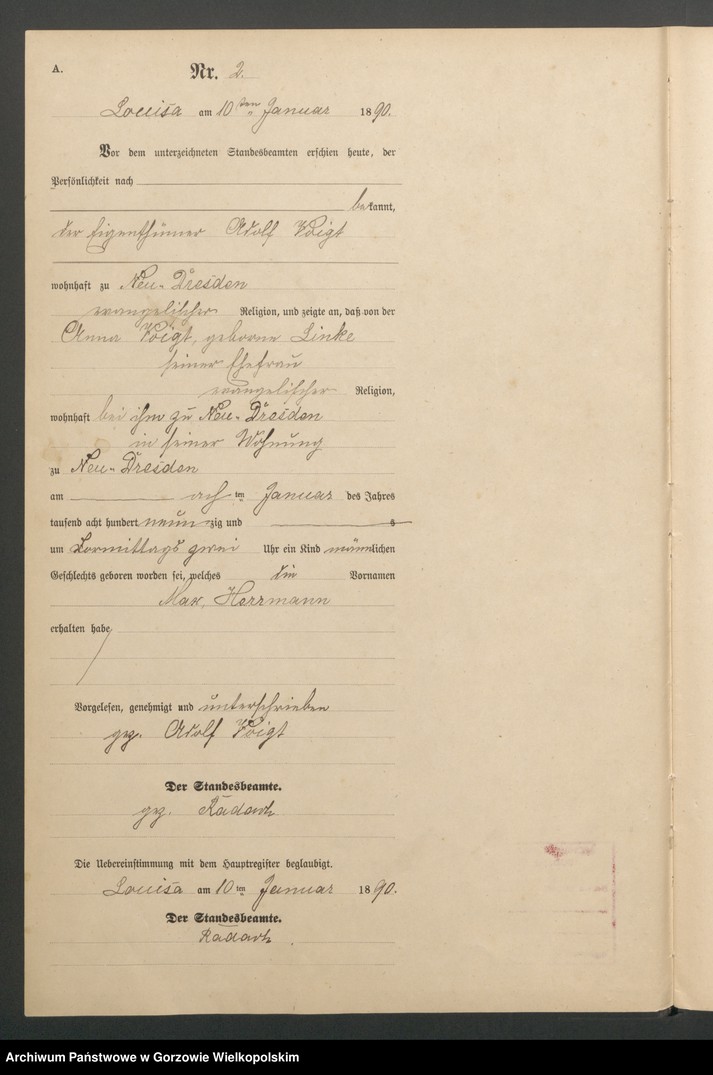 A.
Nr. 2.
Louisa am 10ten Januar 1890.
Vor dem unterzeichneten Standesbeamten erschien heute, der
Persönlichkeit nach
bekannt,
der Eigenthümer Adolf Voigt
wohnhaft zu Neu-Dresden
evangelischer Religion, und zeigte an, daß von der
Anna Voigt, geborne Linke
seiner Ehefrau
evangelischer Religion,
wohnhaft bei ihm zu Neu-Dresden
in seiner Wohnung
zu Neu-Dresden
am achten Januar des Jahres
tausend acht hundert neunzig und
um Vormittags zwei Uhr ein Kind männlichen
Geschlechts geboren worden sei, welches die Vornamen
Max, Herrmann
erhalten habe
Vorgelesen, genehmigt und unterschrieben
gez. Adolf Voigt
Der Standesbeamte.
gez. Radach
Die Uebereinstimmung mit dem Hauptregister beglaubigt.
Louisa am 10ten Januar 1890.
Der Standesbeamte.
Radach
Archiwum Państwowe w Gorzowie Wielkopolskim